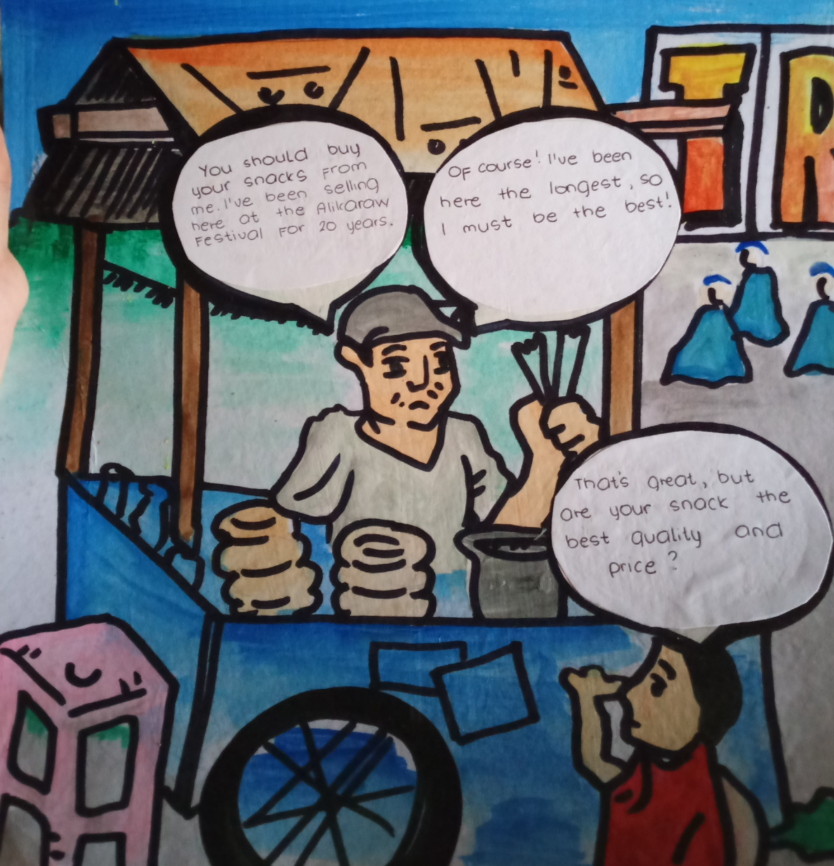 You should buy
your snacks from
me. I've been selling
here at the Alikaraw
Festival for 20 years.
Of course! I've been
here the longest, so
I must be the best!
That's great, but
are your snack the
best quality and
price?
TR